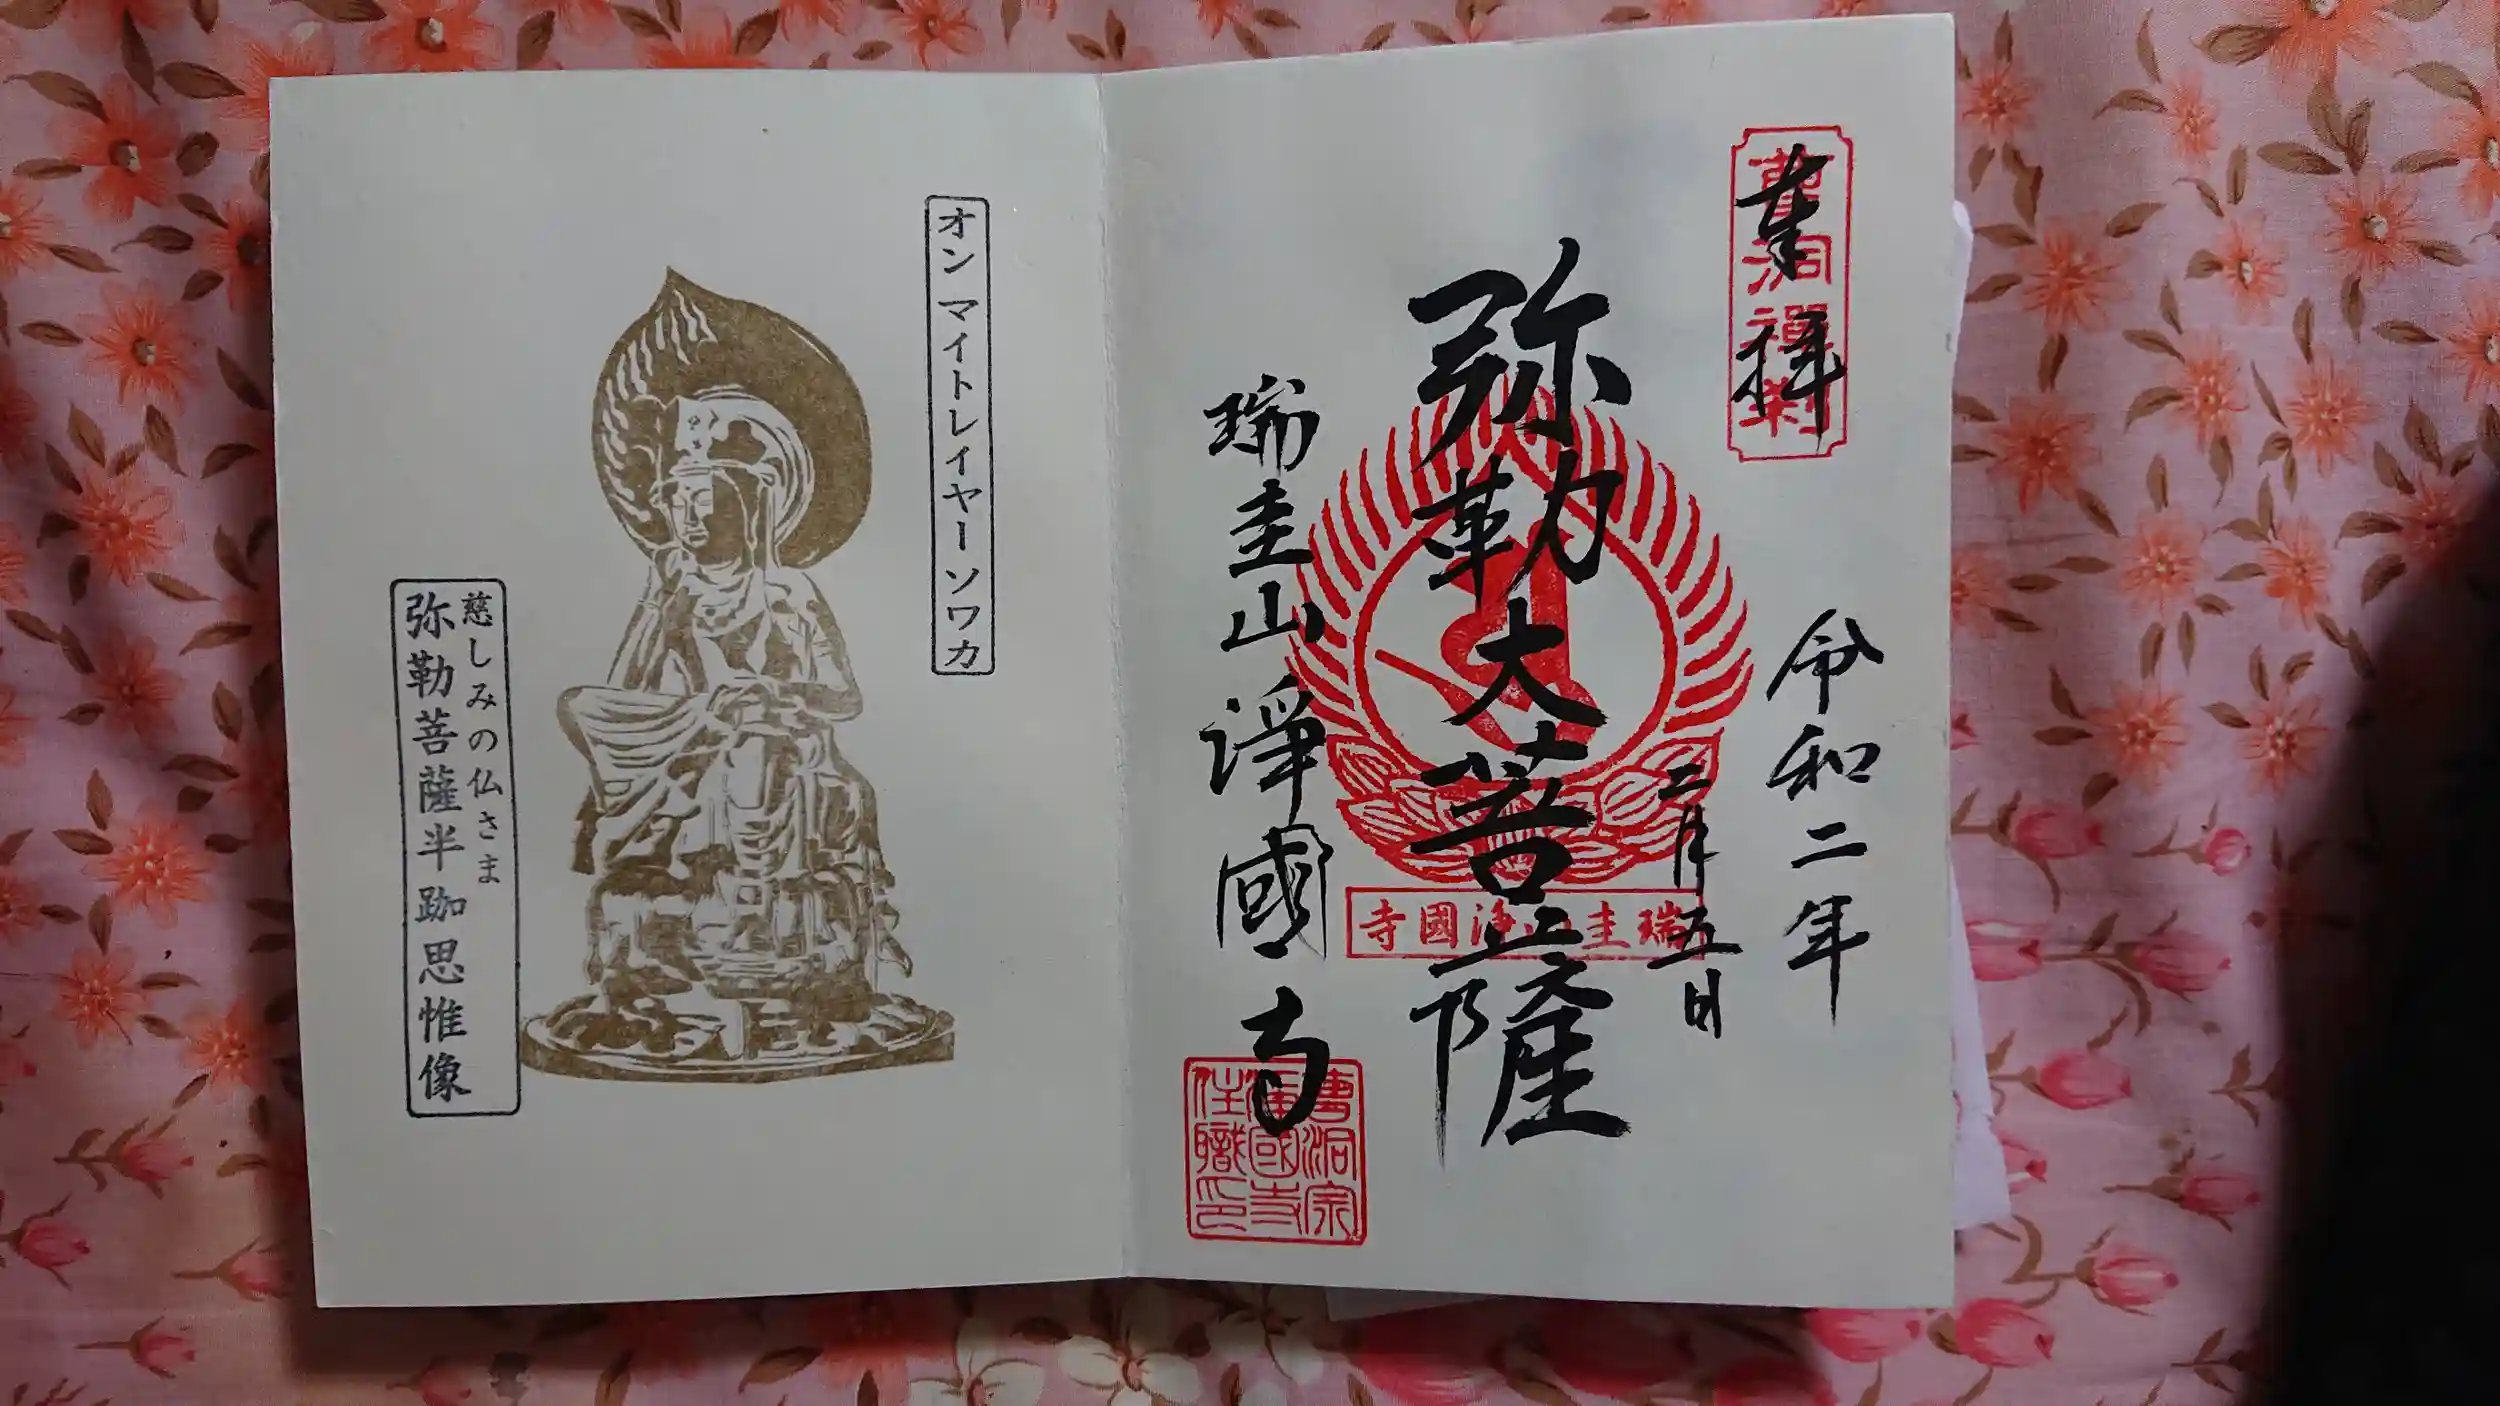 奉拝
曹洞禅刹
令和二年
二月五日
弥勒大菩薩
瑞圭山淨國寺
瑞圭山淨國寺
曹洞宗
淨國寺
住職印
オン マイトレイヤー ソワカ
慈しみの仏さま
弥勒菩薩半跏思惟像